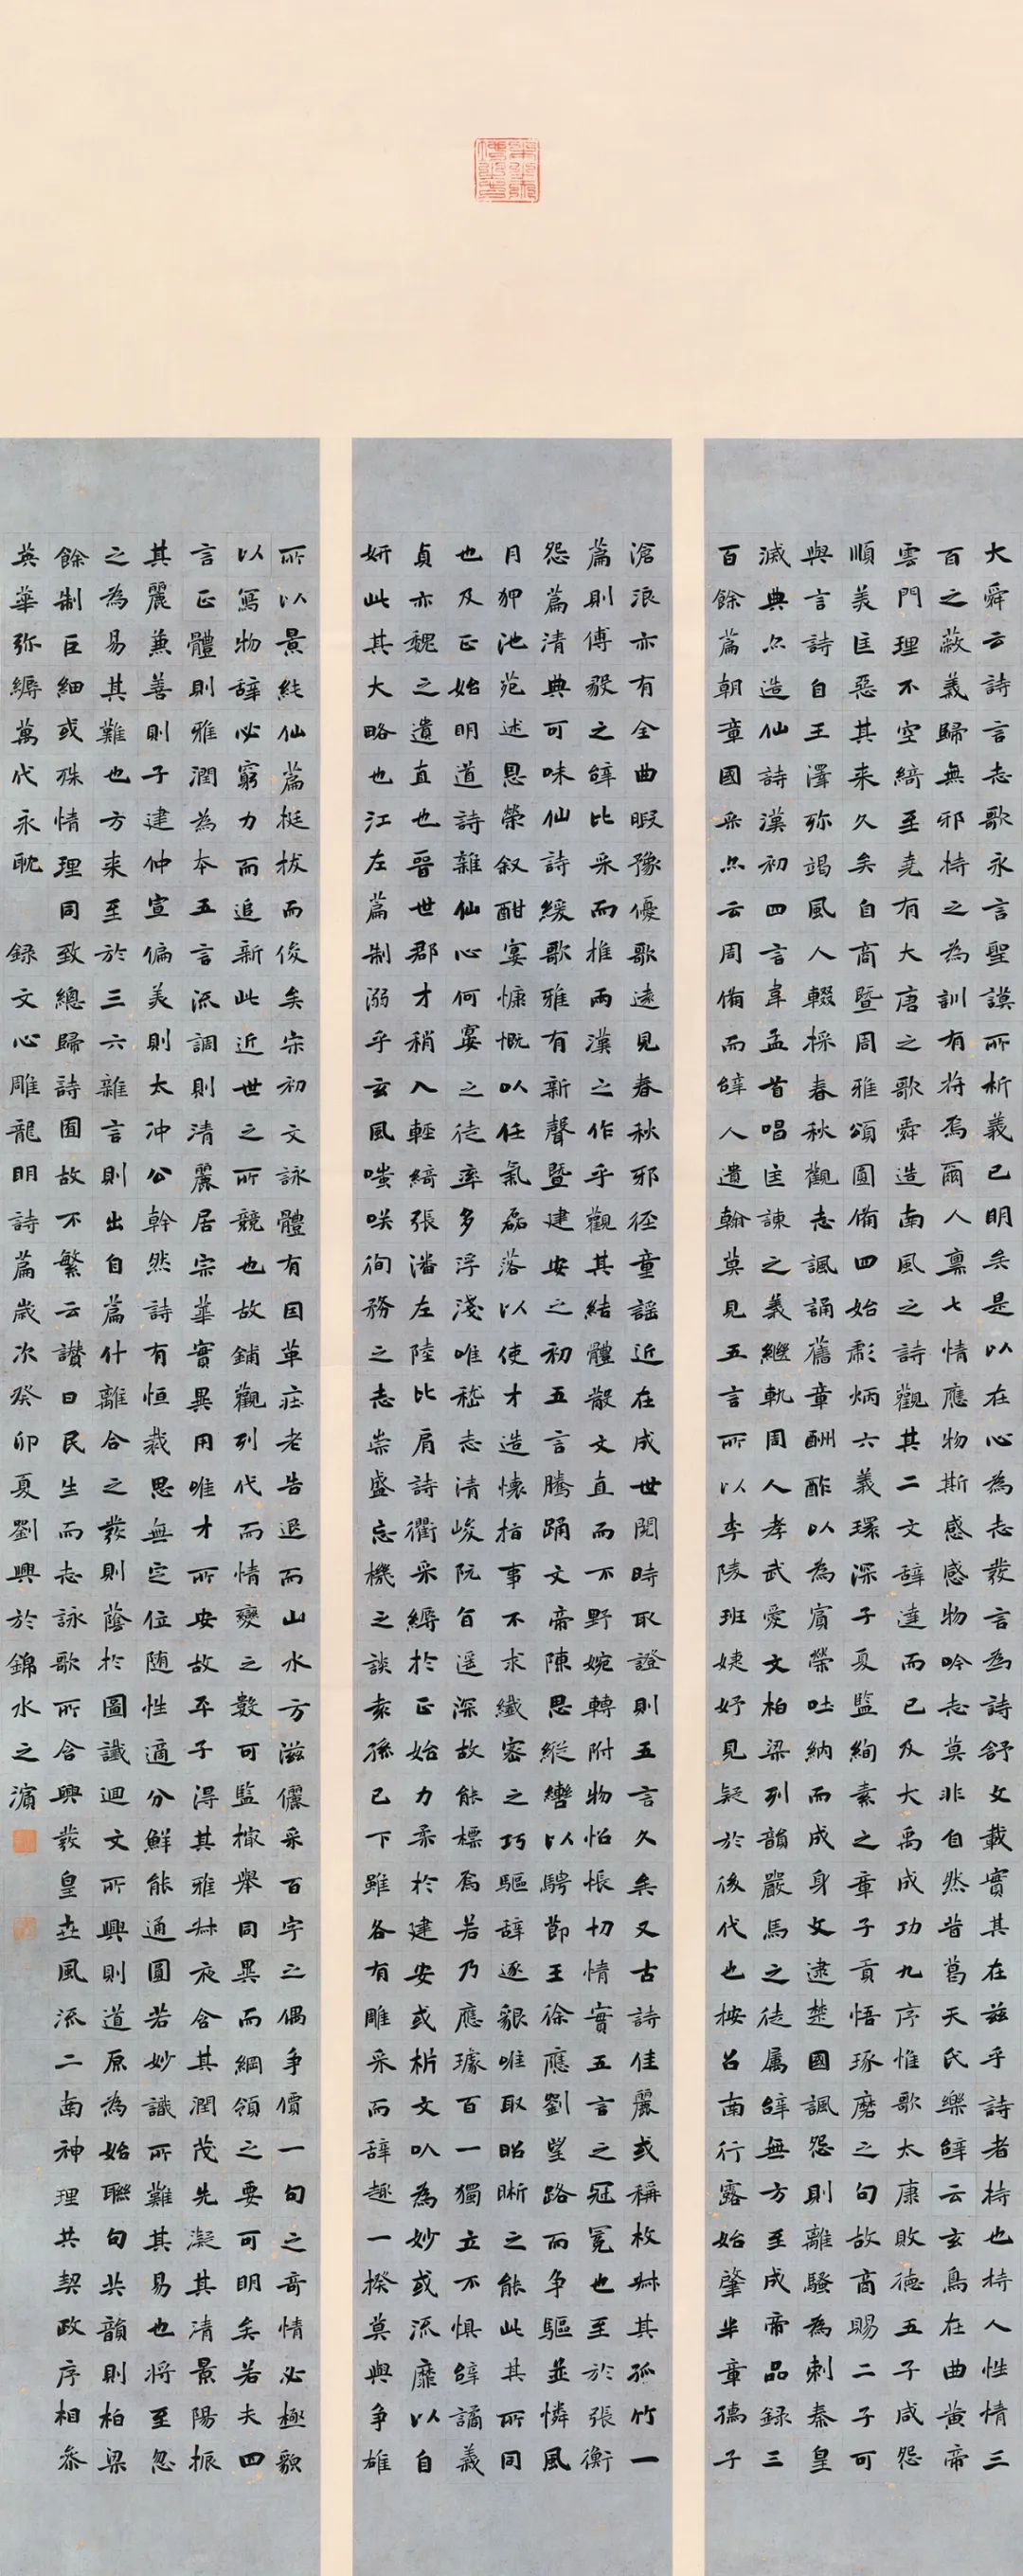 大舜云詩言志歌永言聖謨所析義已明矣是以在心為志發言為詩舒文載實其在茲乎詩者持也持人性情三
百之蔽義歸無邪持之為訓有符焉爾人稟七情應物斯感感物吟志莫非自然昔葛天氏樂辭云玄鳥在曲黃帝
雲門理不空綺至堯有大唐之歌舜造南風之詩觀其二文辭達而已及大禹成功九序惟歌太康敗德五子咸怨
順美匡惡其来久矣自商暨周雅頌圓備四始彪炳六義環深子夏監絢素之章子貢悟琢磨之句故商賜二子可
與言詩自王澤弥竭風人輟採春秋觀志諷誦舊章酬酢以為賓榮吐納而成身文逮楚國諷怨則離騷為刺秦皇
滅典亦造仙詩漢初四言韋孟首唱匡諫之義繼軌周人孝武愛文柏梁列韻嚴馬之徒属辭無方至成帝品録三
百餘篇朝章國采亦云周備而辭人遺翰莫見五言所以李陵班婕妤見疑於後代也按召南行露始肇半章孺子
滄浪亦有全曲暇豫優歌遠見春秋邪徑童謠近在成世閱時取證則五言久矣又古詩佳麗或稱枚叔其孤竹一
篇則傅毅之辭比采而推兩漢之作乎觀其結體散文直而不野婉轉附物怡悵切情實五言之冠冕也至於張衡
怨篇清典可味仙詩緩歌雅有新聲暨建安之初五言騰踊文帝陳思縱轡以騁節王徐應劉望路而争驅並憐風
月狎池苑述恩榮叙酣宴慷慨以任氣磊落以使才造懷指事不求纖密之巧驅辭逐貌唯取昭晰之能此其所同
也及正始明道詩雜仙心何晏之徒率多浮淺唯嵇志清峻阮旨遥深故能標焉若乃應璩百一獨立不懼辭譎義
貞亦魏之遺直也晉世郡才稍入輕綺張潘左陸比肩詩衢采縟於正始力柔於建安或析文以為妙或流靡以自
妍此其大略也江左篇制溺乎玄風嗤笑徇務之志崇盛忘機之談袁孫已下雖各有雕采而辭趣一揆莫與争雄
所以景純仙篇挺拔而俊矣宋初文詠體有因革莊老告退而山水方滋儷采百字之偶争價一句之奇情必極貌
以寫物辭必窮力而追新此近世之所競也故鋪觀列代而情變之數可監撮舉同異而綱領之要可明矣若夫四
言正體則雅潤為本五言流調則清麗居宗華實異用唯才所安故平子得其雅叔夜含其潤茂先凝其清景陽振
其麗兼善則子建仲宣偏美則太冲公幹然詩有恒裁思無定位随性適分鮮能通圓若妙識所難其易也將至忽
之為易其難也方来至於三六雜言則出自篇什離合之發則蔭於圖讖迴文所興則道原為始聯句共韻則柏梁
餘制巨細或殊情理同致總歸詩囿故不繁云讚曰民生而志詠歌所含興發皇世風流二南神理共契政序相參
英華弥縟萬代永耽 録文心雕龍明詩篇歲次癸卯夏劉興於錦水之濱